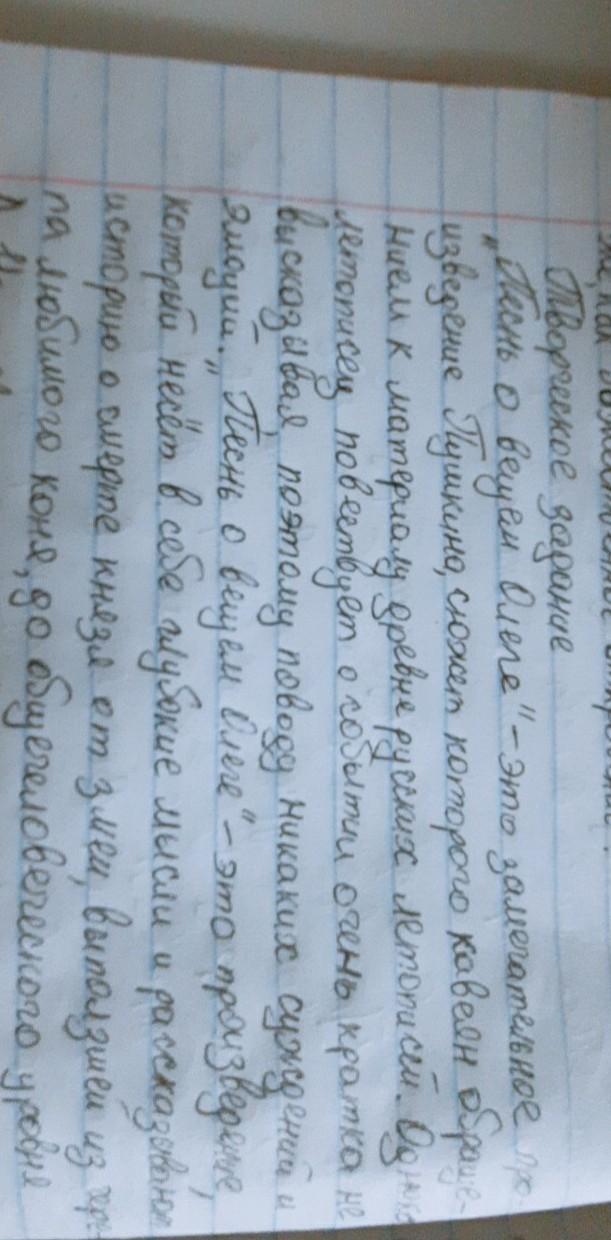 Творческое задание
„Песнь о вещем Олеге" – это замечательное про-
изведение Пушкина, сюжет которого навеян обраще-
нием к материалу древне русских летописей. Однако
летописец повествует о событии очень кратка не
высказывая поэтому поводу никаких суждений и
эмоций. „Песнь о вещем Олеге" – это произведение,
который несёт в себе глубокие мысли и рассказывая
историю о смерте князя от змеи, выползшей из чере-
па любимого коня, до общечеловеческого уровня